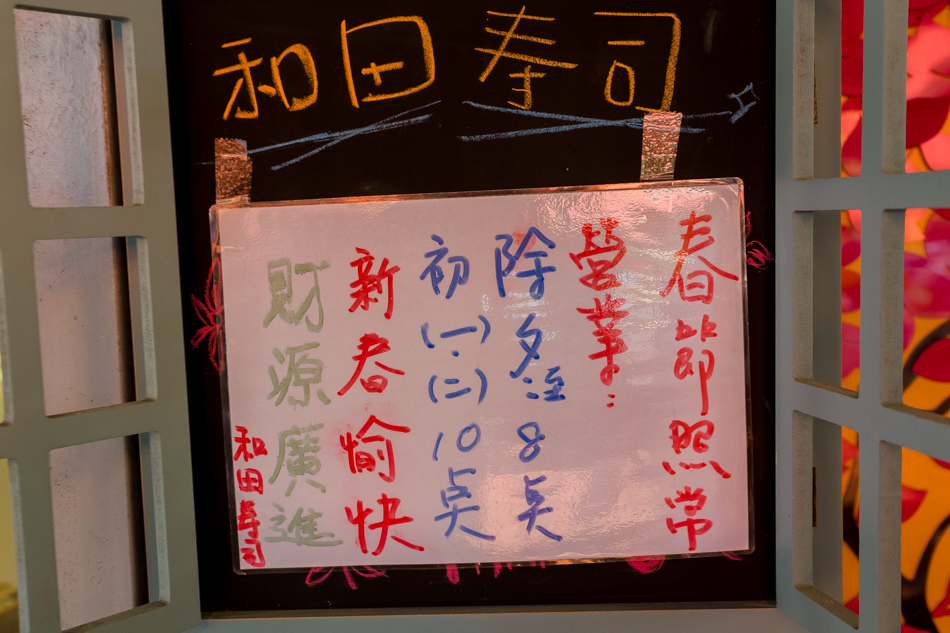 和田寿司
春節照常
營業:
除夕至8点
初(一)(二)10点
新春愉快
財源廣進
和田寿司